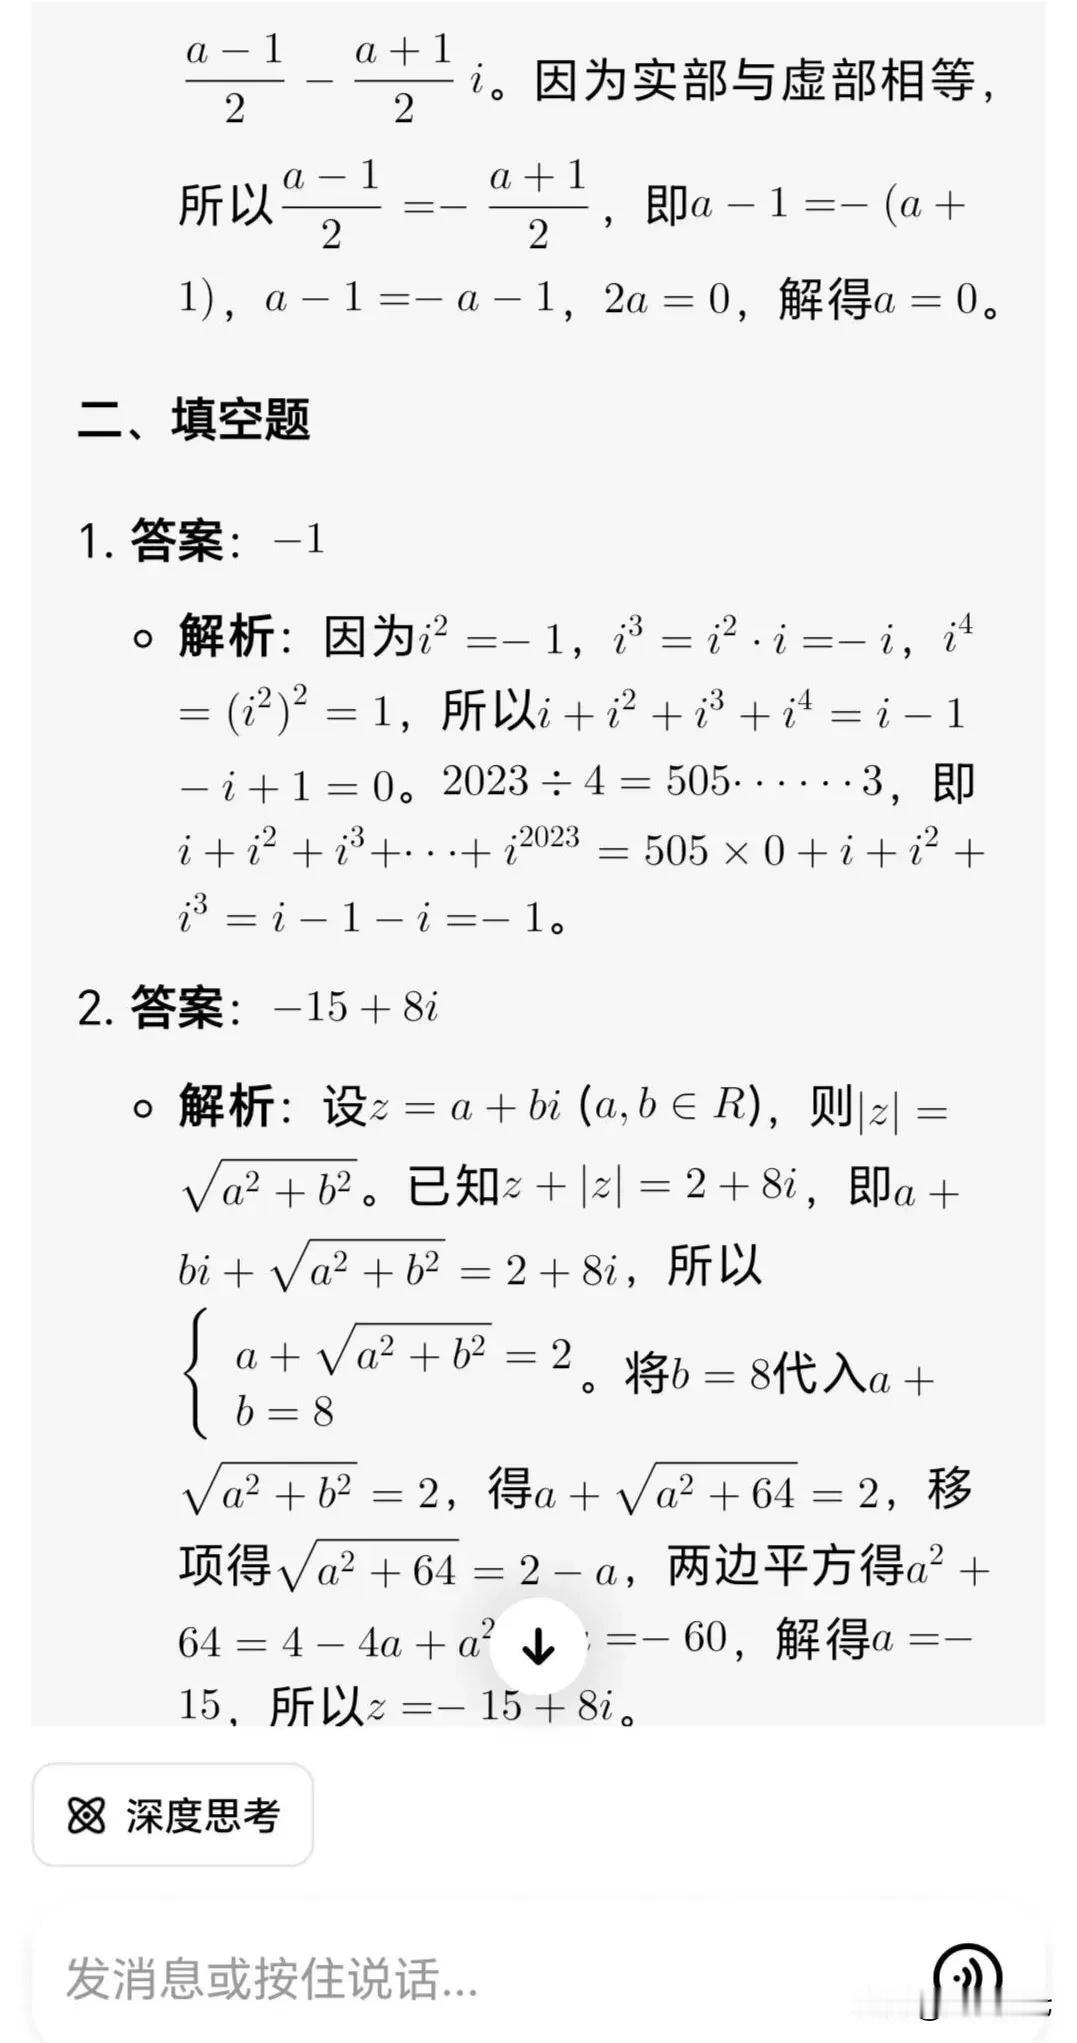 (a − 1)/2 − (a + 1)/2 i。因为实部与虚部相等，
所以(a − 1)/2 =− (a + 1)/2，即a − 1 =− (a +
1)，a − 1 =− a − 1，2a = 0，解得a = 0。
二、填空题
1. 答案：−1
解析：因为i² =− 1，i³ = i² · i =− i，i⁴
= (i²)² = 1，所以i + i² + i³ + i⁴ = i − 1
− i + 1 = 0。2023 ÷ 4 = 505· · · · · ·3，即
i + i² + i³+· · ·+ i²⁰²³ = 505 × 0 + i + i² +
i³ = i − 1 − i =− 1。
2. 答案：−15 + 8i
解析：设z = a + bi (a, b ∈ R)，则|z| =
√(a² + b²)。已知z + |z| = 2 + 8i，即a +
bi + √(a² + b²) = 2 + 8i，所以
{ a + √(a² + b²) = 2
b = 8 。将b = 8代入a +
√(a² + b²) = 2，得a + √(a² + 64) = 2，移
项得√(a² + 64) = 2 − a，两边平方得a² +
64 = 4 − 4a + a² =− 60，解得a =−
15，所以z =− 15 + 8i。
深度思考
发消息或按住说话...